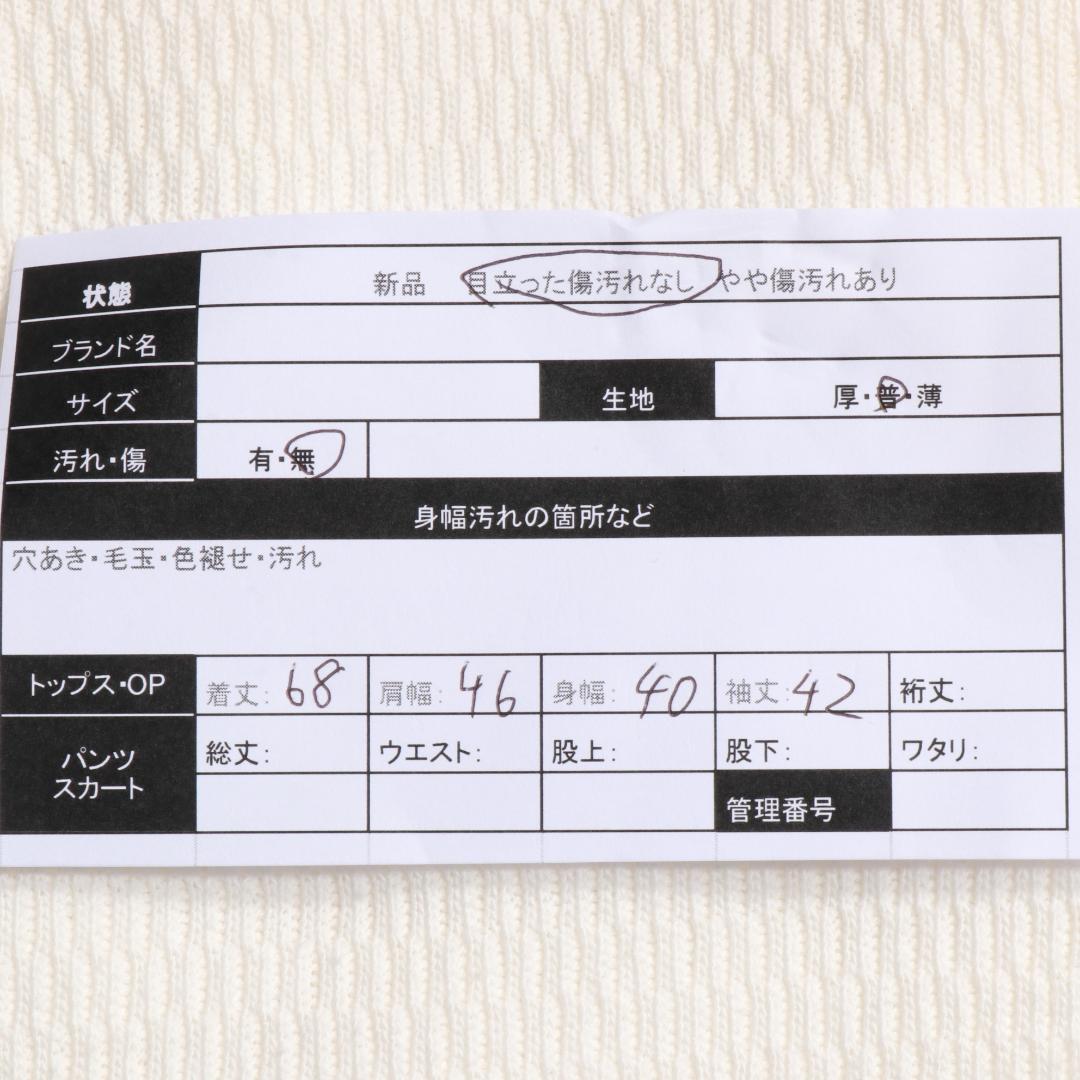 状態 新品 目立った傷汚れなし やや傷汚れあり
ブランド名
サイズ 生地 厚・普・薄
汚れ・傷 有・無
身幅汚れの箇所など
穴あき・毛玉・色褪せ・汚れ
トップス・OP 着丈: 68 肩幅: 46 身幅: 40 袖丈: 42 裄丈:
パンツ スカート 総丈: ウエスト: 股上: 股下: ワタリ:
管理番号